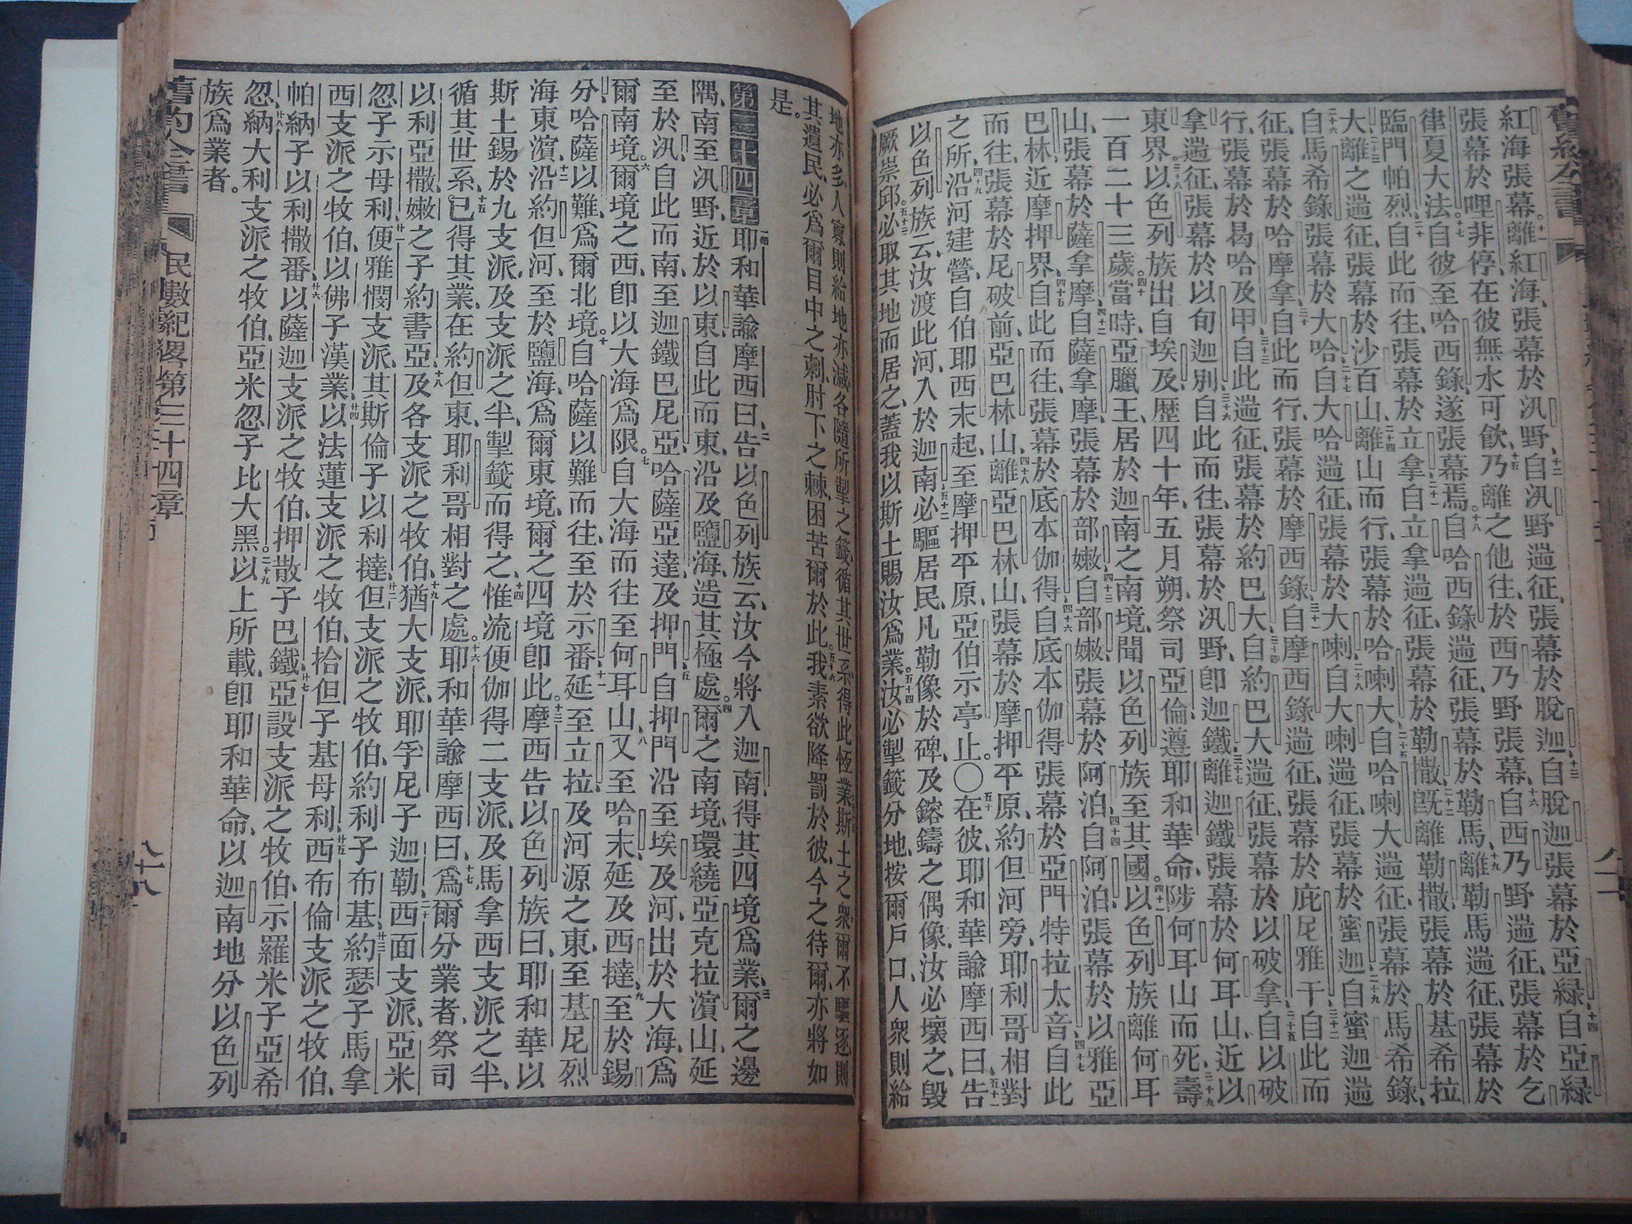 紅海張幕、離紅海、張幕於汎野、自汎野遄征、張幕於脫迦、自脫迦張幕於亞緑、自亞緑
張幕於哩非停、在彼無水可飲、乃離之他往、於西乃野張幕、自西乃野遄征、張幕於乞
律夏大法、自彼至哈西錄、遂張幕焉、自哈西錄遄征、張幕於勒馬、離勒馬遄征、張幕於
臨門帕烈、自此而往、張幕於立拿、自立拿遄征、張幕於勒撒、既離勒撒、張幕於基希拉
大、離之遄征、張幕於沙百山、離山而行、張幕於哈喇大、自哈喇大遄征、張幕於馬希錄、
自馬希錄、張幕於大哈、自大哈遄征、張幕於大喇、自大喇遄征、張幕於蜜迦、自蜜迦遄
征、張幕於哈摩拿、自此而行、張幕於摩西錄、自摩西錄遄征、張幕於庇尼雅干、自此而
行、張幕於曷哈及甲、自此遄征、張幕於約巴大、自約巴大遄征、張幕於以破拿、自以破
拿遄征、張幕於以旬迦別、自此而往、張幕於汎野、卽迦鐵、離迦鐵、張幕於何耳山、近以
東界、以色列族出自埃及、歷四十年五月朔、祭司亞倫遵耶和華命、陟何耳山而死、壽
一百二十三歲、當時亞臘王、居於迦南之南境、聞以色列族至其國。以色列族離何耳
山、張幕於薩拿摩、自薩拿摩、張幕於部嫩、自部嫩、張幕於阿泊、自阿泊、張幕於以雅亞
巴林、近摩押界、自此而往、張幕於底本伽得、自底本伽得、張幕於亞門特拉太音、自此
而往、張幕於尼破前、亞巴林山、離亞巴林山、張幕於摩押平原、約但河旁、耶利哥相對
之所、沿河建營、自伯耶西末起、至摩押平原、亞伯示亭止。〇在彼耶和華諭摩西曰、告
以色列族云、汝渡此河、入於迦南、必驅居民、凡勒像於碑、及鎔鑄之偶像、汝必壞之、毀
厥崇邱、必取其地而居之、蓋我以斯土賜汝爲業。汝必掣籤分地、按爾戶口、人衆則給
地亦多、人寡則給地亦減、各隨所掣之籤、循其世系、得此恆業、斯土之衆、爾不驅逐、則
其遺民、必爲爾目中之刺、肘下之棘、困苦爾於此。我素欲降罰於彼、今之待爾、亦將如
是。
第三十四章 耶和華諭摩西曰、告以色列族云、汝今將入迦南、得其四境爲業、爾之邊
隅、南至汎野、近於以東、自此而東、沿及鹽海、造其極處。爾之南境、環繞亞克拉濱山、延
至於汎、自此而南、至迦鐵巴尼亞、哈薩亞達、及押門、自押門沿至埃及河、出於大海、爲
爾南境、爾境之西、卽以大海爲限。自大海而往、至何耳山、又至哈末、延及西撻、至於錫
分、哈薩以難、爲爾北境。自哈薩以難而往、至於示番、延至立拉、及河源之東、至基尼烈
海東濱、沿約但河、至於鹽海、爲爾東境、爾之四境卽此、摩西告以色列族曰、耶和華以
斯土錫於九支派、及支派之半、掣籤而得之、惟流便伽得二支派、及馬拿西支派之半、
循其世系、已得其業、在約但東、耶利哥相對之處。耶和華諭摩西曰、爲爾分業者、祭司
以利亞撒、嫩之子約書亞、及各支派之牧伯、猶大支派、耶孚尼子迦勒、西面支派、亞米
忽子示母利、便雅憫支派、其斯倫子以利撻、但支派之牧伯、約利子布基、約瑟子馬拿
西支派之牧伯、以佛子漢業、以法蓮支派之牧伯、拾但子基母利、西布倫支派之牧伯、
帕納子以利撒番、以薩迦支派之牧伯、押散子巴鐵、亞設支派之牧伯、示羅米子亞希
忽、納大利支派之牧伯、亞米忽子比大黑。以上所載、卽耶和華命以迦南地分以色列
族爲業者。
舊約全書 民數紀畧第三十四章 八十八